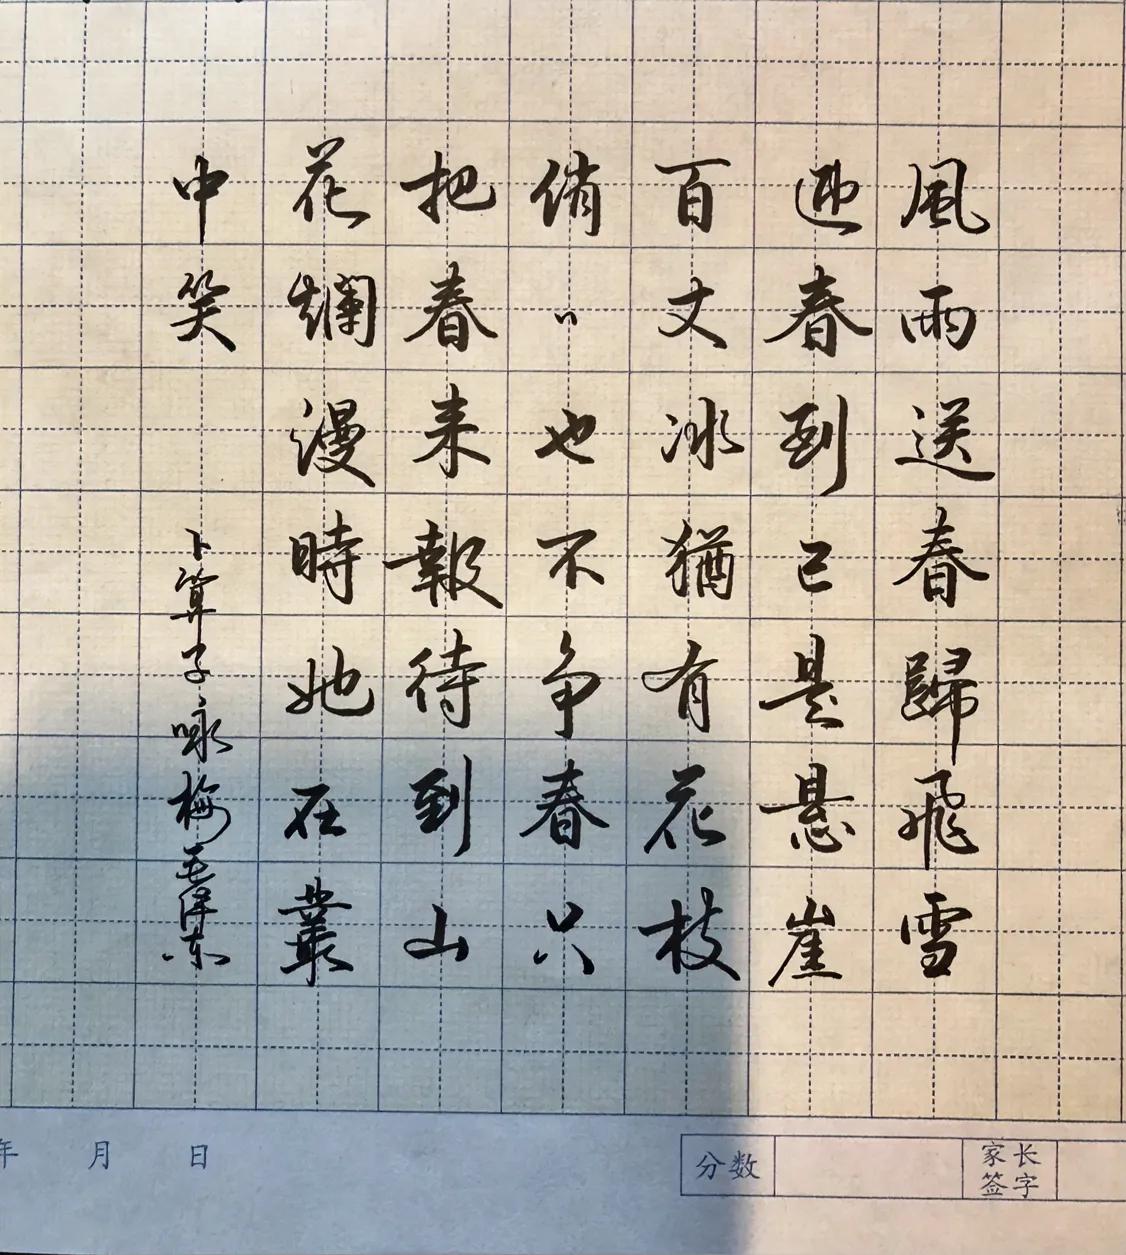 風雨送春歸飛雪
迎春到已是悬崖
百丈冰猶有花枝
俏〃也不争春只
把春来報待到山
花爛漫時她在叢
中笑
卜算子咏梅毛泽东
年 月 日
分数
家长签字